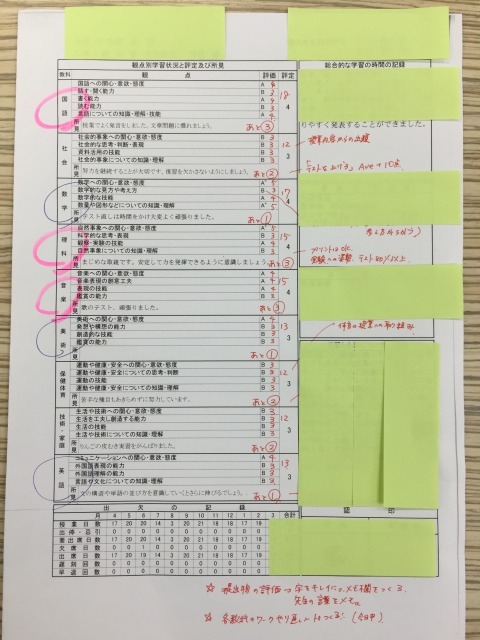 観点別学習状況と評定及び所見
総合的な学習の時間の記録
教科 観点 評価 評定
国語
国語への関心・意欲・態度 A 4
話す・聞く能力 B 3
書く能力 A 4
読む能力 B 3
言語についての知識・理解・技能 A 4
18
4
所見 授業でよく発言をしました。文章問題に慣れましょう。
あと③
りやすく発表することができました。
社会
社会的事象への関心・意欲・態度 B 3
社会的な思考・判断・表現 B 3
資料活用の技能 B 3
社会的事象についての知識・理解 B 3
12
3
所見 努力を継続することが大切です。復習を欠かさないようにしましょう。
あと②
授業内容からの出題
テストを上げる Ave+10点
数学
数学への関心・意欲・態度 A° 5
数学的な見方や考え方 B 3
数学的な技能 A 4
数量や図形などについての知識・理解 A° 5
17
4
所見 テスト直しは時間をかけ大変よく頑張りました。
あと①
理科
自然事象への関心・意欲・態度 A° 5
科学的な思考・表現 B 3
観察・実験の技能 A 4
自然事象についての知識・理解 B 3
15
3
所見 まじめな取組です。安定して力を発揮できるように意識しましょう。
あと③
音楽
音楽への関心・意欲・態度 A 4
音楽表現の創意工夫 A 4
表現の技能 A 4
鑑賞の能力 B 3
15
4
所見 歌のテスト、頑張りました。
美術
美術への関心・意欲・態度 B 3
発想や構想の能力 B 3
創造的な技能 B
鑑賞の能力
13
3
所見
あと①
保健体育
運動や健康・安全への関心・意欲・態度 B 3
運動や健康・安全についての思考・判断 B 3
運動の技能 B 3
運動や健康・安全についての知識・理解 B 3
12
3
所見 苦手な種目もあきらめずに努力しています。
あと②
技術・家庭
生活や技術への関心・意欲・態度 B 3
生活を工夫し創造する能力 B 3
生活の技能 B 3
生活や技術についての知識・理解 B 3
12
3
所見 りんごの皮むき実習をがんばりました。
あと②
英語
コミュニケーションへの関心・意欲・態度 A 4
外国語表現の能力 B 3
外国語理解の能力 B 3
言語や文化についての知識・理解 B 3
13
3
所見 文の構造や単語の並び方を意識していくとさらに伸びるでしょう。
あと①
出欠の記録
月 4 5 6 7 8 9 10 11 12 1 2 3 合計
授業日数 17 20 20 14 3 20 21 18 18 17 19
出停・忌引 0 0 0 0 0 0 0 0 0 0 0
要出席日数 17 20 20 14 3 20 21 18 18 17 19
欠席日数 0 0 1 0 0 0 0 0 0 0 0
出席日数 17 20 19 14 3 20 21 18 18 17 19
遅刻回数 0 0 0 0 0 0 0 0 0 0 0
早退回数 0 0 0 0 0 0 0 0 0 0 0
認印
☆ 提出物の評価→字をキレイに、メモ欄をつくる
先生の言葉をメモ。
☆ 各教科のワークやり直しノートつくる!